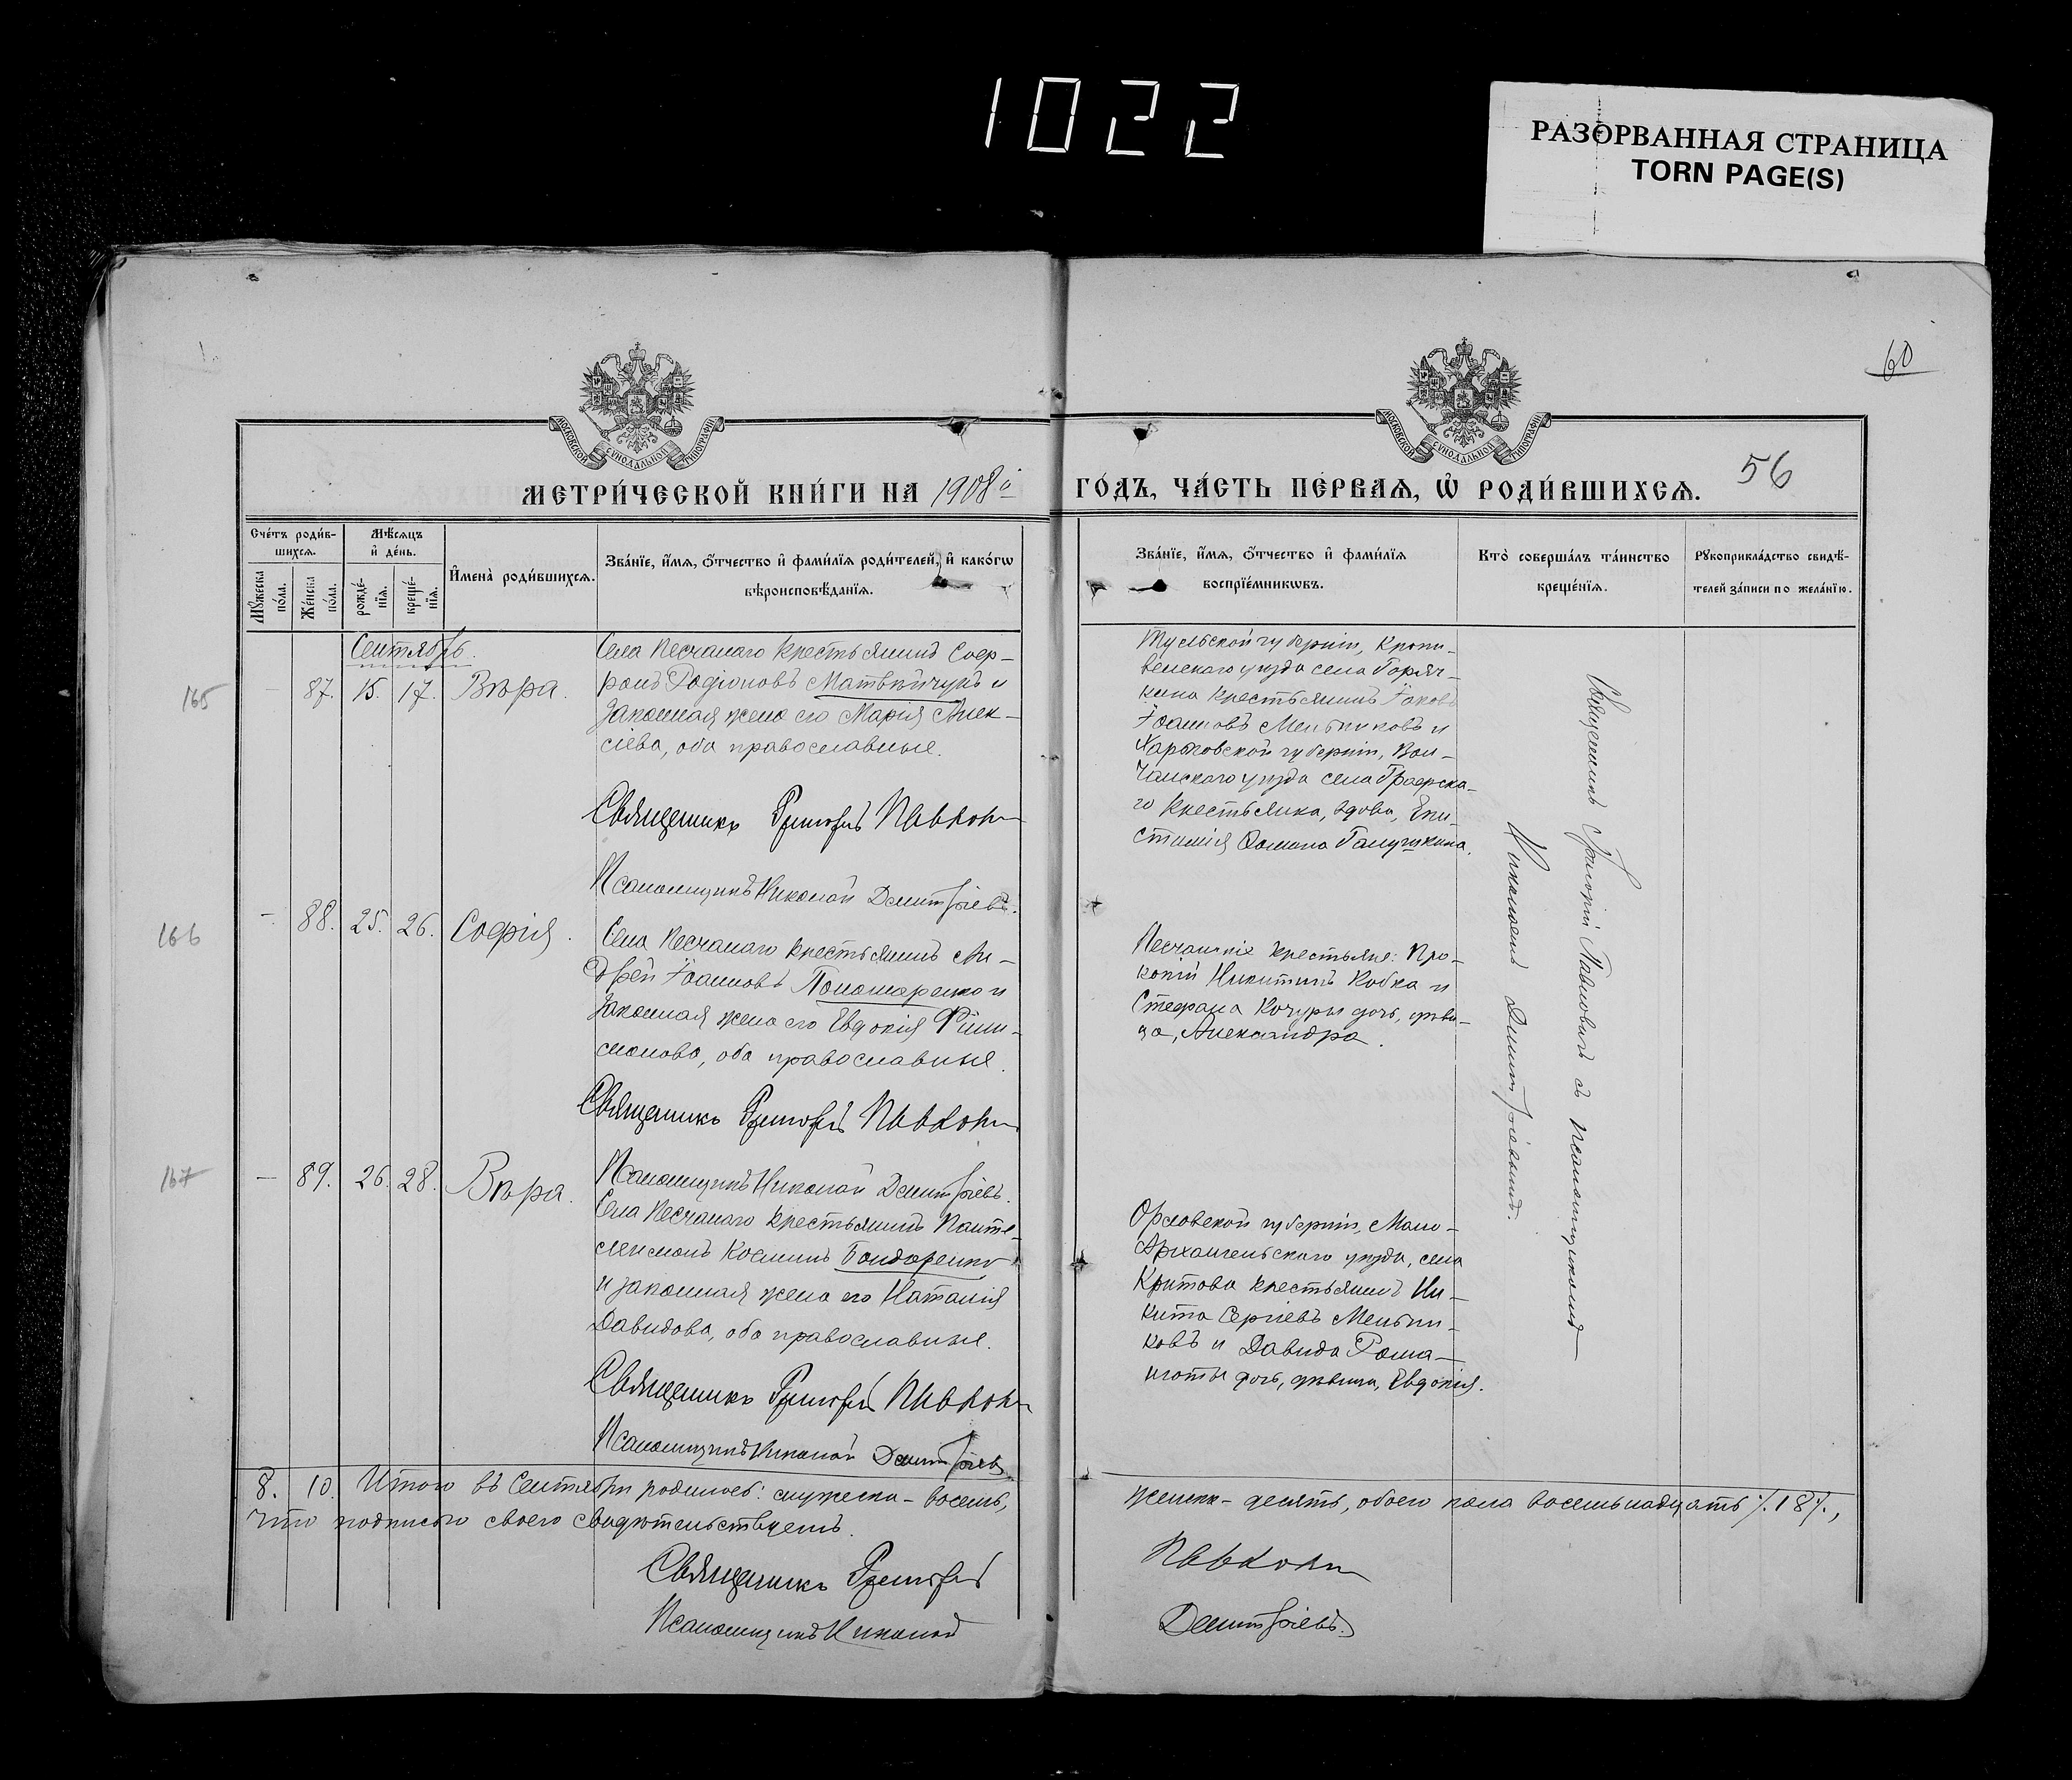 1022
РАЗОРВАННАЯ СТРАНИЦА
TORN PAGE(S)
60
56
МОСКОВСКОЙ СѴНОДАЛЬНОЙ ТИПОГРАФІИ
МОСКОВСКОЙ СѴНОДАЛЬНОЙ ТИПОГРАФІИ
МЕТРИ́ЧЕСКОЙ КНИ́ГИ НА 1908й
ГО́ДЪ, ЧА́СТЬ ПЕ́РВАѦ, Ѡ҆ РОДИ́ВШИХСѦ.
Сче́тъ роди́в-
шихсѧ.
Мѣ́сѧцъ
и҆ де́нь.
Мꙋ́жеска
по́ла.
Же́нска
по́ла.
рожде́-
нїѧ.
креще́-
нїѧ.
И҆мена̀ роди́вшихсѧ.
Зва́нїе, и҆́мѧ, ѻ҆́тчество и҆ фами́лїѧ роди́телей, и҆ како́гѡ
вѣроисповѣ́данїѧ.
Зва́нїе, и҆́мѧ, ѻ҆́тчество и҆ фами́лїѧ
воспрїе́мникѡвъ.
Кто̀ соверша́лъ та́инство
креще́нїѧ.
Рꙋкоприкла́дство свидѣ́-
телей за́писи по жела́нїю.
Сентябрь.
165
— 87. 15. 17. Вѣра.
Села Песчанаго крестьянинъ Соф-
ронъ Родіоновъ Матвѣйчукъ и
законная жена его Марія Алек-
сіева, оба православные.
Священникъ Григорій
Псаломщикъ Николай Димитріевъ.
Тульской губерніи, Крапи-
венскаго уѣзда села Горяч-
кина крестьянинъ Іаковъ
Іоанновъ Мельниковъ и
Харьковской губерніи, Вол-
чанскаго уѣзда села Графска-
го крестьянка, вдова, Епи-
стимія Ѳомина Галушкина.
166
— 88. 25. 26. Софія.
Села Песчанаго крестьянинъ Ан-
дрей Іоанновъ Пономаренко и
законная жена его Евдокія Фили-
монова, оба православные.
Священникъ Григорій
Псаломщикъ Николай Димитріевъ.
Песчанскіе крестьяне: Про-
копій Никитинъ Кобка и
Стефана Кочуры дочь, дѣви-
ца, Александра.
167
— 89. 26. 28. Вѣра.
Села Песчанаго крестьянинъ Панте-
леимонъ Косминъ Бондаренко
и законная жена его Наталія
Давидова, оба православные.
Священникъ Григорій
Псаломщикъ Николай Димитріевъ
Орловской губерніи, Мало-
Архангельскаго уѣзда, села
Критова крестьянинъ Ни-
кита Сергіевъ Мельни-
ковъ и Давида
дочь, дѣвица, Евдокія.
Священникъ Григорій съ псаломщикомъ
Николаемъ Димитріевымъ.
8. 10. Итого въ Сентябрѣ родилось: мужеска - восемь,
женска - десять, обоего пола восемьнадцать /.18/.,
что подписью своею свидѣтельствуемъ.
Священникъ Григорій
Псаломщикъ Николай
Димитріевъ.